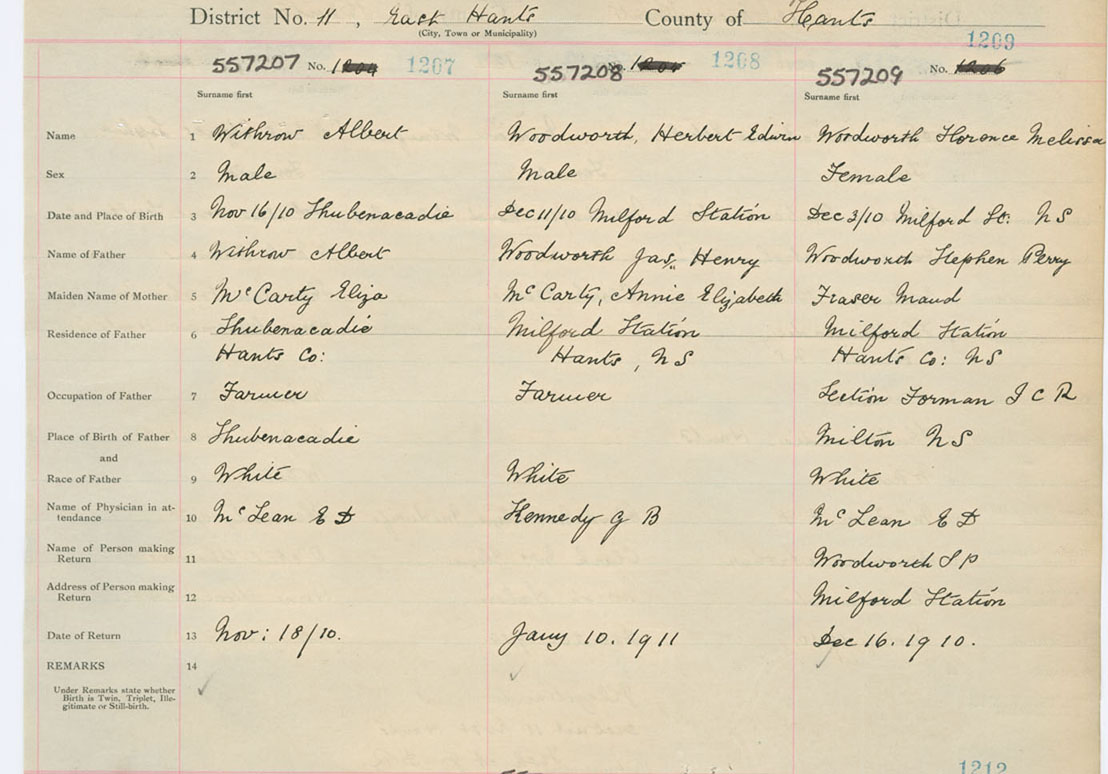 District No. 11, East Hants County of Hants
(City, Town or Municipality)
1209
557207 No. 1204 1207 557208 1205 1208 557209 No. 1206
Surname first Surname first Surname first
Name 1 Withrow Albert Woodworth, Herbert Edwin Woodworth Florence Melissa
Sex 2 Male Male Female
Date and Place of Birth 3 Nov 16/10 Shubenacadie Dec 11/10 Milford Station Dec 3/10 Milford St: NS
Name of Father 4 Withrow Albert Woodworth Jas, Henry Woodworth Stephen Perry
Maiden Name of Mother 5 McCarty Eliza McCarty, Annie Elizabeth Fraser Maud
Residence of Father 6 Shubenacadie Milford Station Milford Station
Hants Co: Hants, NS Hants Co: NS
Occupation of Father 7 Farmer Farmer Section Forman I C R
Place of Birth of Father 8 Shubenacadie Milton NS
and
Race of Father 9 White White White
Name of Physician in at-
tendance 10 McLean E D Kennedy G B McLean E D
Name of Person making
Return 11 Woodworth S P
Address of Person making
Return 12 Milford Station
Date of Return 13 Nov: 18/10. Jany 10. 1911 Dec 16. 1910.
REMARKS 14
Under Remarks state whether
Birth is Twin, Triplet, Ille-
gitimate or Still-birth.
1212